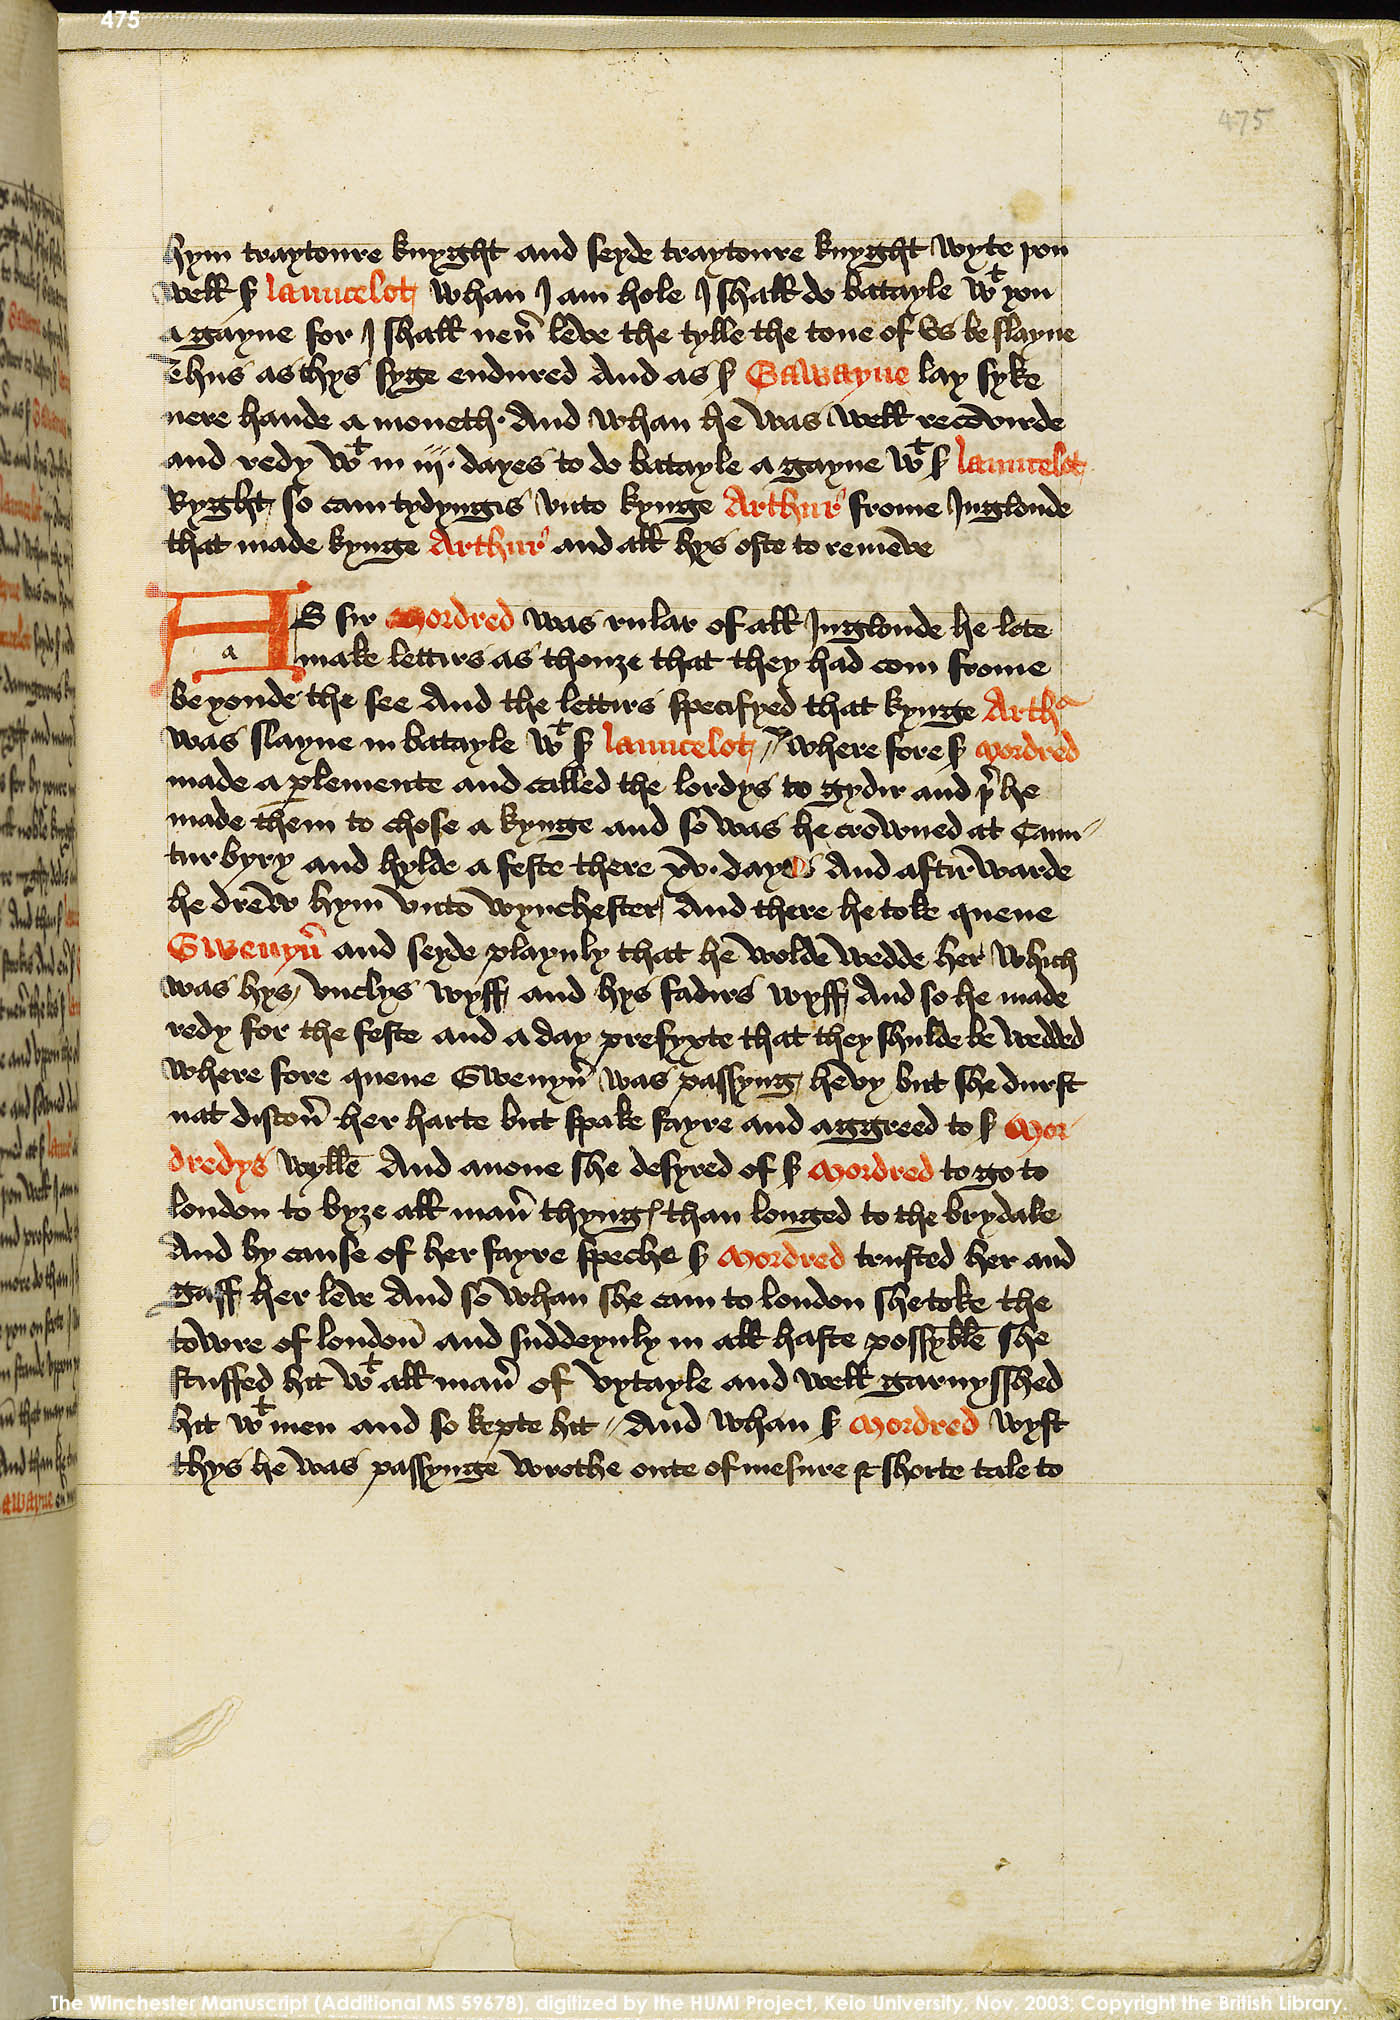 475
475
hym traytoure knyght and seyde traytoure knyght wyte you
well ẜ launcelot whan J am hole J shall do batayle wᵗ you
a gayne for J shall neu̾ leve the tylle the tone of vs be slayne
Thus as thys syge endured And as ẜ Gawayne lay syke
nere hande a moneth · And whan he was well recovirde
and redy wᵗ in iij · dayes to do batayle a gayne wᵗ ẜ launcelot
Ryght so cam tydyngis vnto kynge Arthur̾ frome Jnglonde
that made kynge Arthur̾ and all hys oste to remeve
AS sir Mordred was rular of all Jnglonde he lete
a
make lettirs as thouze that they had com frome
be yonde the see And the lettirs specifyed that kynge Arthᵃ
was slayne in batayle wᵗ ẜ launcelot // where fore ẜ Mordred
made a ꝑlemente and called the lordys to gydir and þ̾ he
made them to chose a kynge and so was he crowned at Caun⸗
turbyry and hylde a feste there xv · dayes And aftirwarde
he drew hym vnto wynchester And there he toke quene
Gwenyu̾ and seyde playnly that he wolde wedde her which
was hys vnclys wyff and hys fadirs wyff And so he made
redy for the feste and a day prefyxte that they shulde be wedded
where fore quene Gwenyu̾ was passyng hevy but she durst
nat discou̾ her harte but spake fayre and aggreed to ẜ Mor
dredys wylle And anone she desyred of ẜ Mordred to go to
london to byze all man̾ thyngꝭ than longed to the brydale
And by cause of her fayre speche ẜ Mordred trusted her and
gaff her leve And so whan she cam to london she toke the
towre of london̄ and suddeynly in all haste possyble she
stuffed hit wᵗ all man̾ of vytayle and well garnysshed
hit wᵗ men and so kepte hit // And whan ẜ Mordred wyst
thys he was passynge wrothe oute of mesure & shorte tale to
The Winchester Manuscript (Additional MS 59678), digitized by the HUMI Project, Keio University, Nov. 2003; Copyright the British Library.